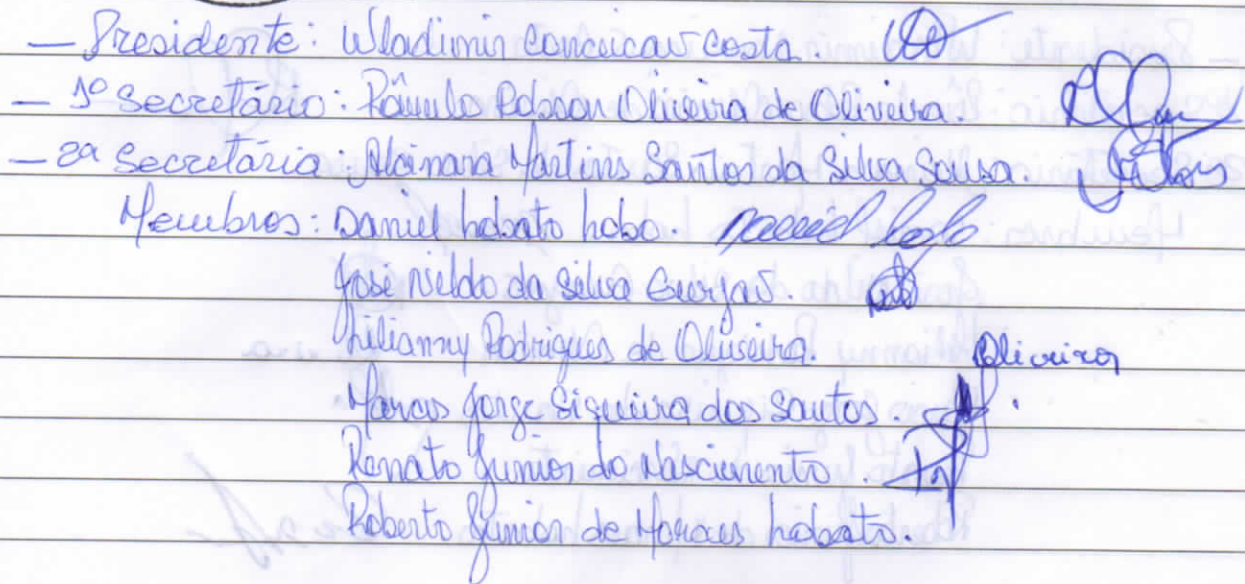 — Presidente: Wladimir Conceicao Costa.
— 1º Secretário: Rômulo Robson Oliveira de Oliveira.
— 2ª Secretária: Alcinara Martins Santos da Silva Sousa.
Membros: Daniel Lobato Lobo. Daniel Lobo
José Nildo da Silva Gurjao.
Lilianny Rodrigues de Oliveira. Oliveira
Marcos Jorge Siqueira dos Santos.
Renato Junior do Nascimento.
Roberto Júnior de Moraes Lobato.